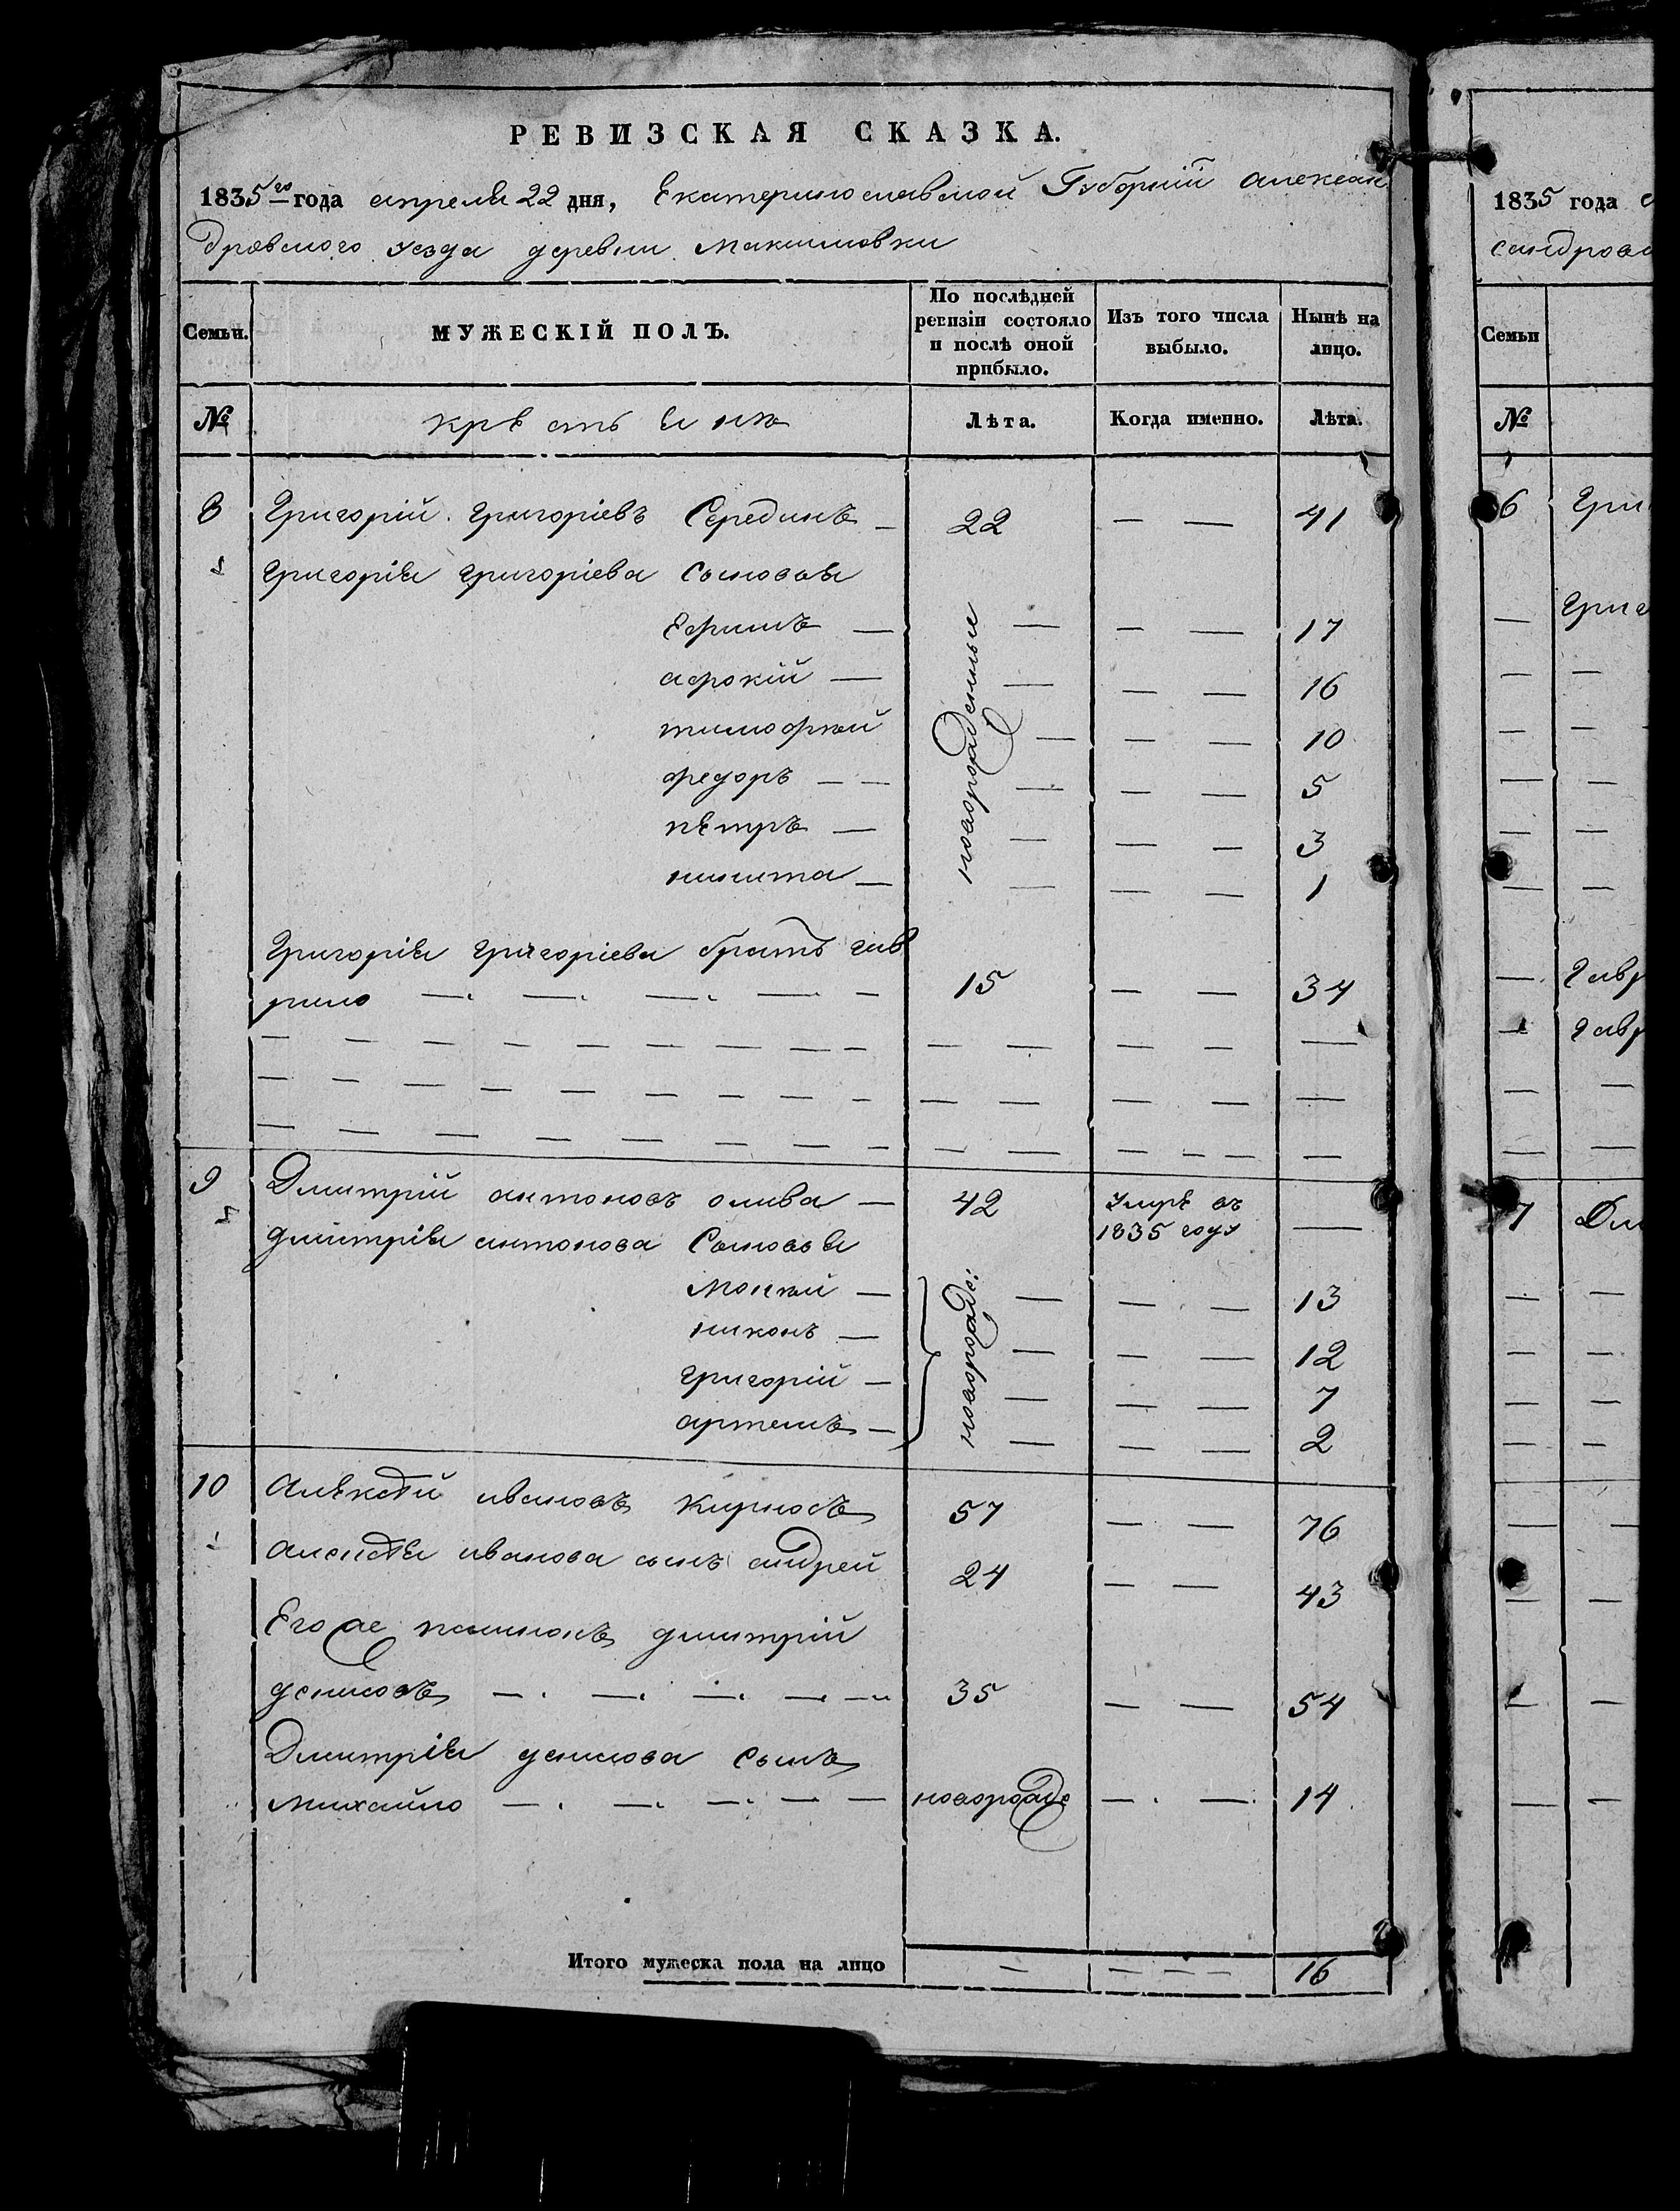 РЕВИЗСКАЯ СКАЗКА.
1835го года апреля 22 дня, Екатеринославской Губорніи Алексан
дровского уезда деревни Максимовки
Семьи. МУЖЕСКІЙ ПОЛЪ. По послѣдней ревизіи состояло и послѣ оной прибыло. Изъ того числа выбыло. Нынѣ на лицо.
№ Лѣта. Когда именно. Лѣта.
8 Григорій Григоріевъ Серединъ — 22 — — 41
Григорія Григоріева Сыновья
новорожденные
Ефимъ — — — — 17
— — — 16
тимофѣй — — — 10
федоръ — — — — — 5
пѣтръ — — — — 3
никита — — — — 1
Григорія Григоріева братъ гав
рило — — — — — 15 — — 34
9 Дмитрій антоновъ олива — 42 Умре въ
1835 году —
дмитрія антонова Сыновья
новорожде:
Мокѣй — — — — 13
никонъ — — — — 12
григорій — — — — 7
артемъ — — — — 2
10 Алѣксѣй ивановъ Кирносъ 57 — — 76
алексѣя иванова сынъ андрей 24 — — 43
Его же дмитрій
денисовъ — — — — — 35 — — 54
Дмитрія денисова Сынъ
михайло — — — — — новорожде — — 14
Итого мужеска пола на лицо — — — — 16
1835 года
сандровс
Семьи
№
6 Гри
Григ
Гавр
Гавр
7 Дм